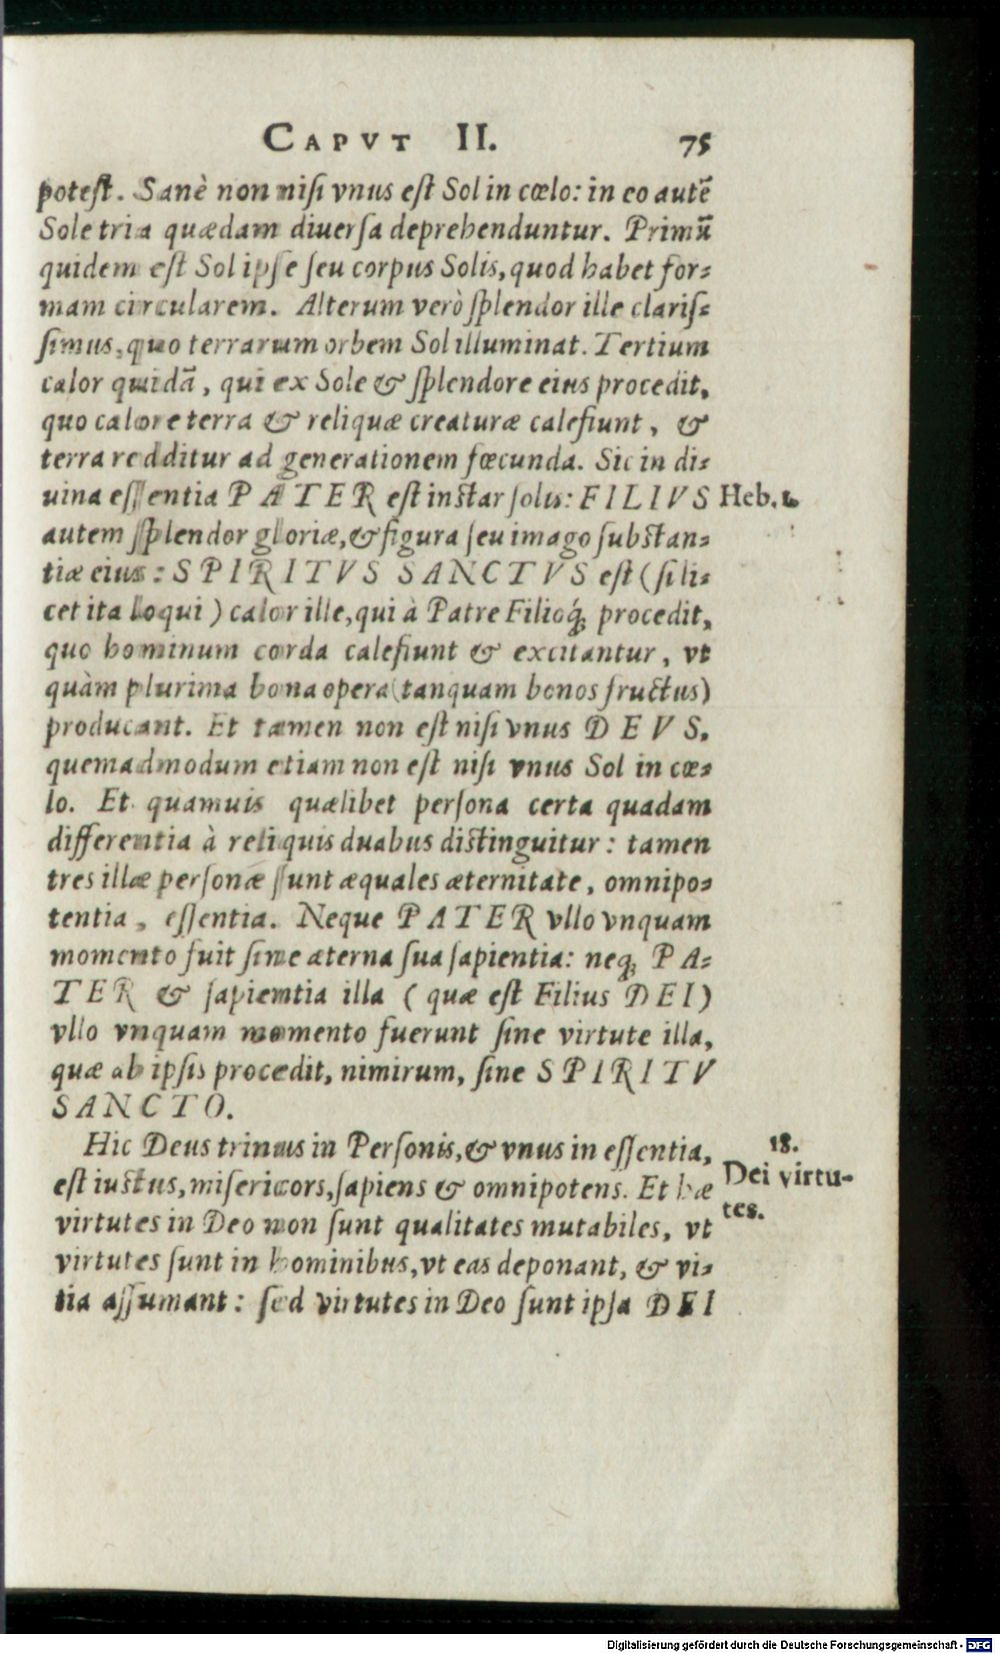 CAPVT II. 75
potest. Sanè non nisi vnus est Sol in cœlo: in eo autē
Sole tria quædam diuersa deprehenduntur. Primū
quidem est Sol ipse seu corpus Solis, quod habet for-
mam circularem. Alterum verò splendor ille claris-
simus, quo terrarum orbem Sol illuminat. Tertium
calor quidā, qui ex Sole & splendore eius procedit,
quo calore terra & reliquæ creaturæ calefiunt, &
terra redditur ad generationem fœcunda. Sic in di-
uina essentia PATER est instar solis: FILIVS Heb. 1.
autem splendor gloriæ, & figura seu imago substan-
tiæ eius: SPIRITVS SANCTVS est (si li-
cet ita loqui) calor ille, qui à Patre Filioq́; procedit,
quo hominum corda calefiunt & excitantur, vt
quàm plurima bona opera (tanquam bonos fructus)
producant. Et tamen non est nisi vnus DEVS,
quemadmodum etiam non est nisi vnus Sol in cœ-
lo. Et quamuis quælibet persona certa quadam
differentia à reliquis duabus distinguitur: tamen
tres illæ personæ sunt æquales æternitate, omnipo-
tentia, essentia. Neque PATER vllo vnquam
momento fuit sine æterna sua sapientia: neq; PA-
TER & sapientia illa (quæ est Filius DEI)
vllo vnquam momento fuerunt sine virtute illa,
quæ ab ipsis procedit, nimirum, sine SPIRITV
SANCTO.
Hic Deus trinus in Personis, & vnus in essentia,
18.
Dei virtu-
tes.
est iustus, misericors, sapiens & omnipotens. Et hæ
virtutes in Deo non sunt qualitates mutabiles, vt
virtutes sunt in hominibus, vt eas deponant, & vi-
tia assumant: sed virtutes in Deo sunt ipsa DEI
Digitalisierung gefördert durch die Deutsche Forschungsgemeinschaft - DFG